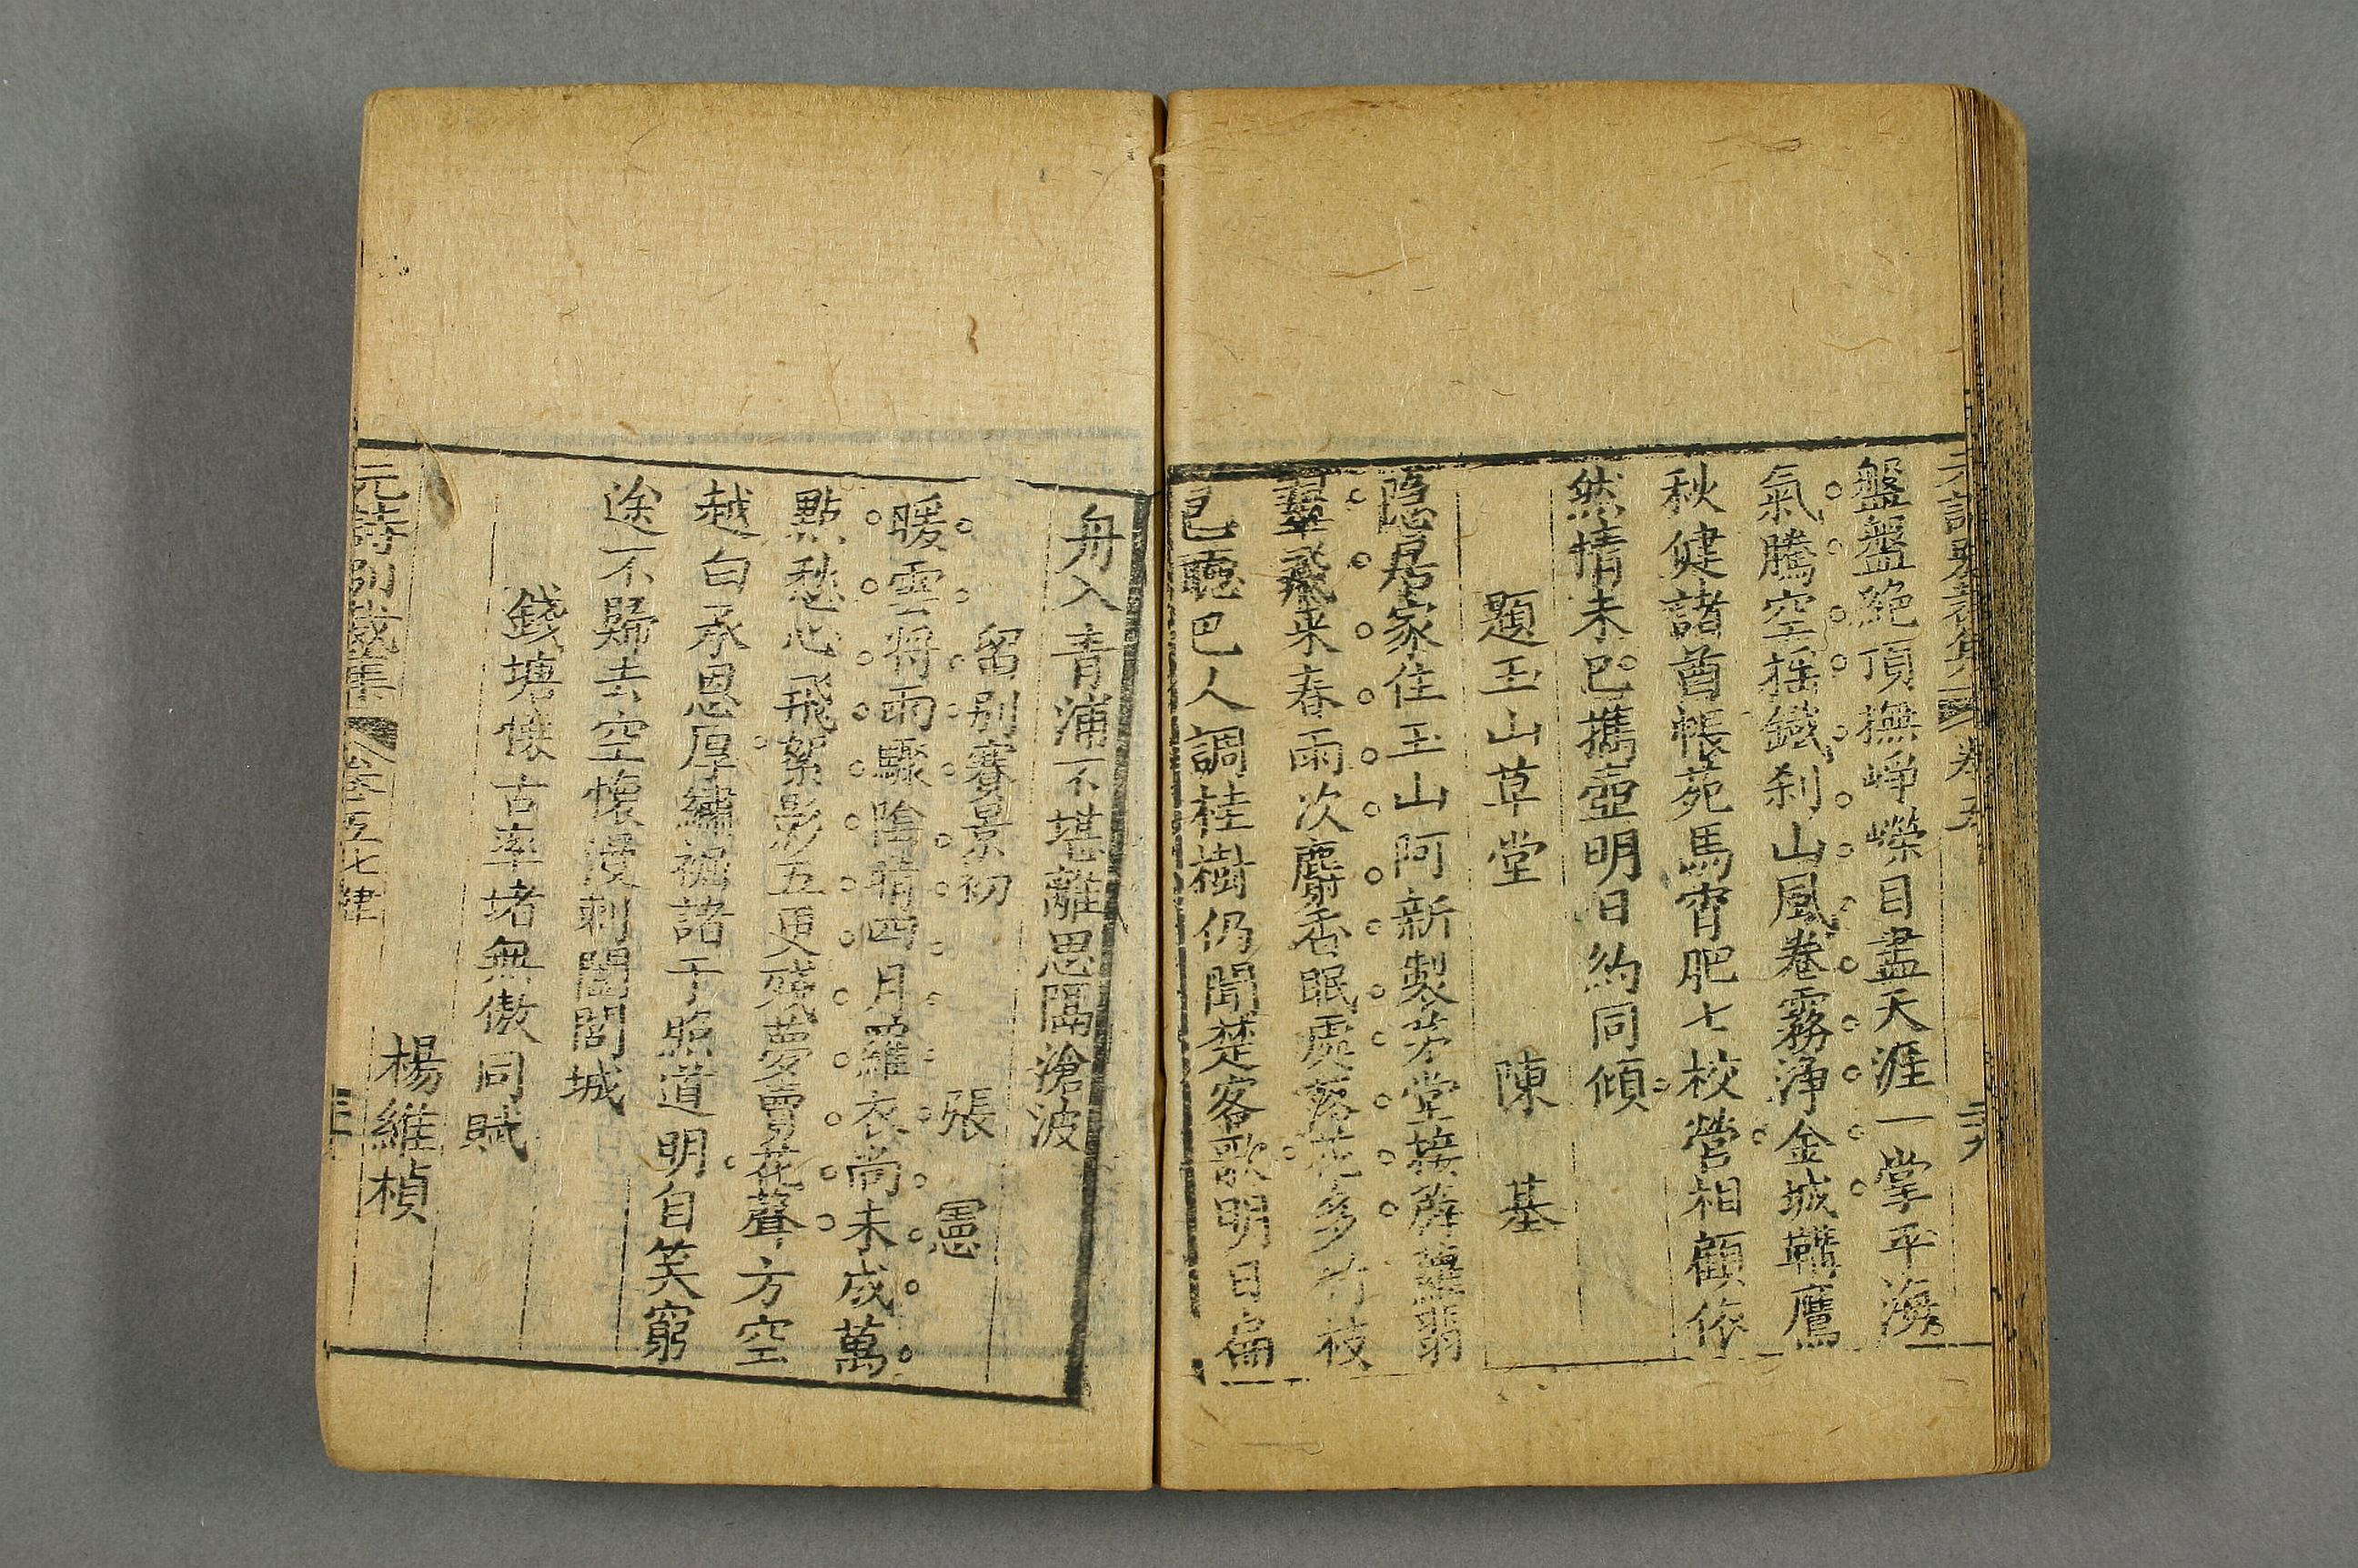 盤盤絶頂撫崢嶸目盡天涯一掌平海
氣騰空搖鐵刹山風卷霧淨金城韝鷹
秋健諸酋帳苑馬宵肥七校營相顧依
然情未已攜壺明日約同傾
題玉山草堂
陳基
隐居家住玉山阿新製茅堂接薜蘿翡
翠飛来春雨次麝香眠處落花多竹枝
已聴巴人調桂樹仍聞楚客歌明日扁
舟入青浦不堪離思隔滄波
留别賽景初
張憲
暖雲将雨驟陰晴四月羅衣尚未成萬
點愁心飛絮影五更殘夢賣花聲方空
越白承恩厚繡裾諸于照道明自笑窮
途不歸去空懷漫刺闔閭城
錢塘懷古率堵無傲同賦
楊維楨
元詩别裁集
卷五七律
卷五